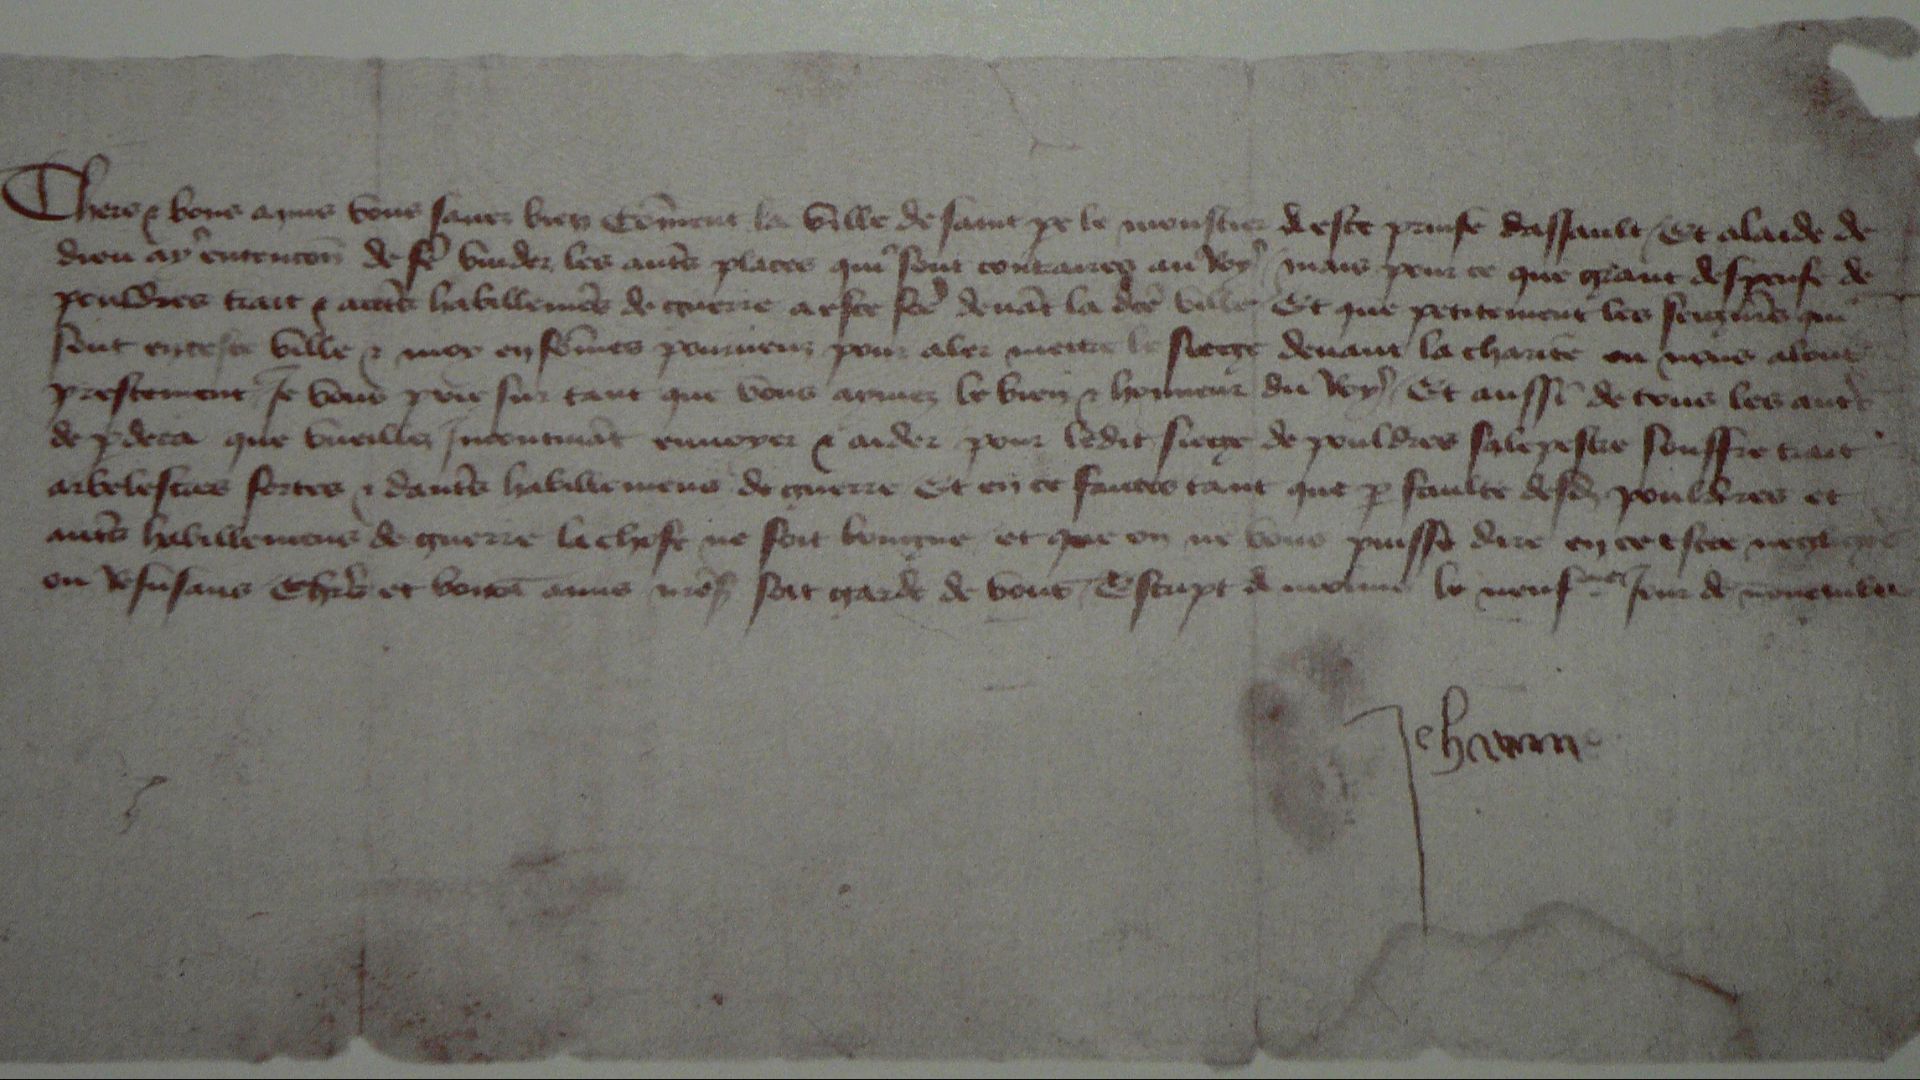 Chers & bons amis vous savez bien coment la ville de saint pe le moustier a este prinse dassault Et a laide de
dieu ay entencon de fe vuider les auts places qui sont contraires au Roy mais pour ce que grant despense de
pouldres trait & auts habillemens de guerre a este fce devat la dce ville Et que petitement les seigneurs qui
sont en ceste ville & moy en somes pourveuz pour aler mettre le siege devant la charite ou nous alons
prestement Je vous prie sur tant que vous aymez le bien & honneur du Roy Et aussi de tous les auts
de p deca que vueillez Incontinat envoyer & aider pour ledit siege de pouldres salepestre souffre trait
arbelestres fortes & dauts habillemens de guerre Et en ce faictes tant que p faulte desd pouldres et
auts habillemens de guerre la chose ne soit longue et que on ne vous puisse dire en ce estre negligens
ou Refusans Chrs et bons amis nre s soit garde de vous Escript a molins le neufme Jour de novembre
Jehanne